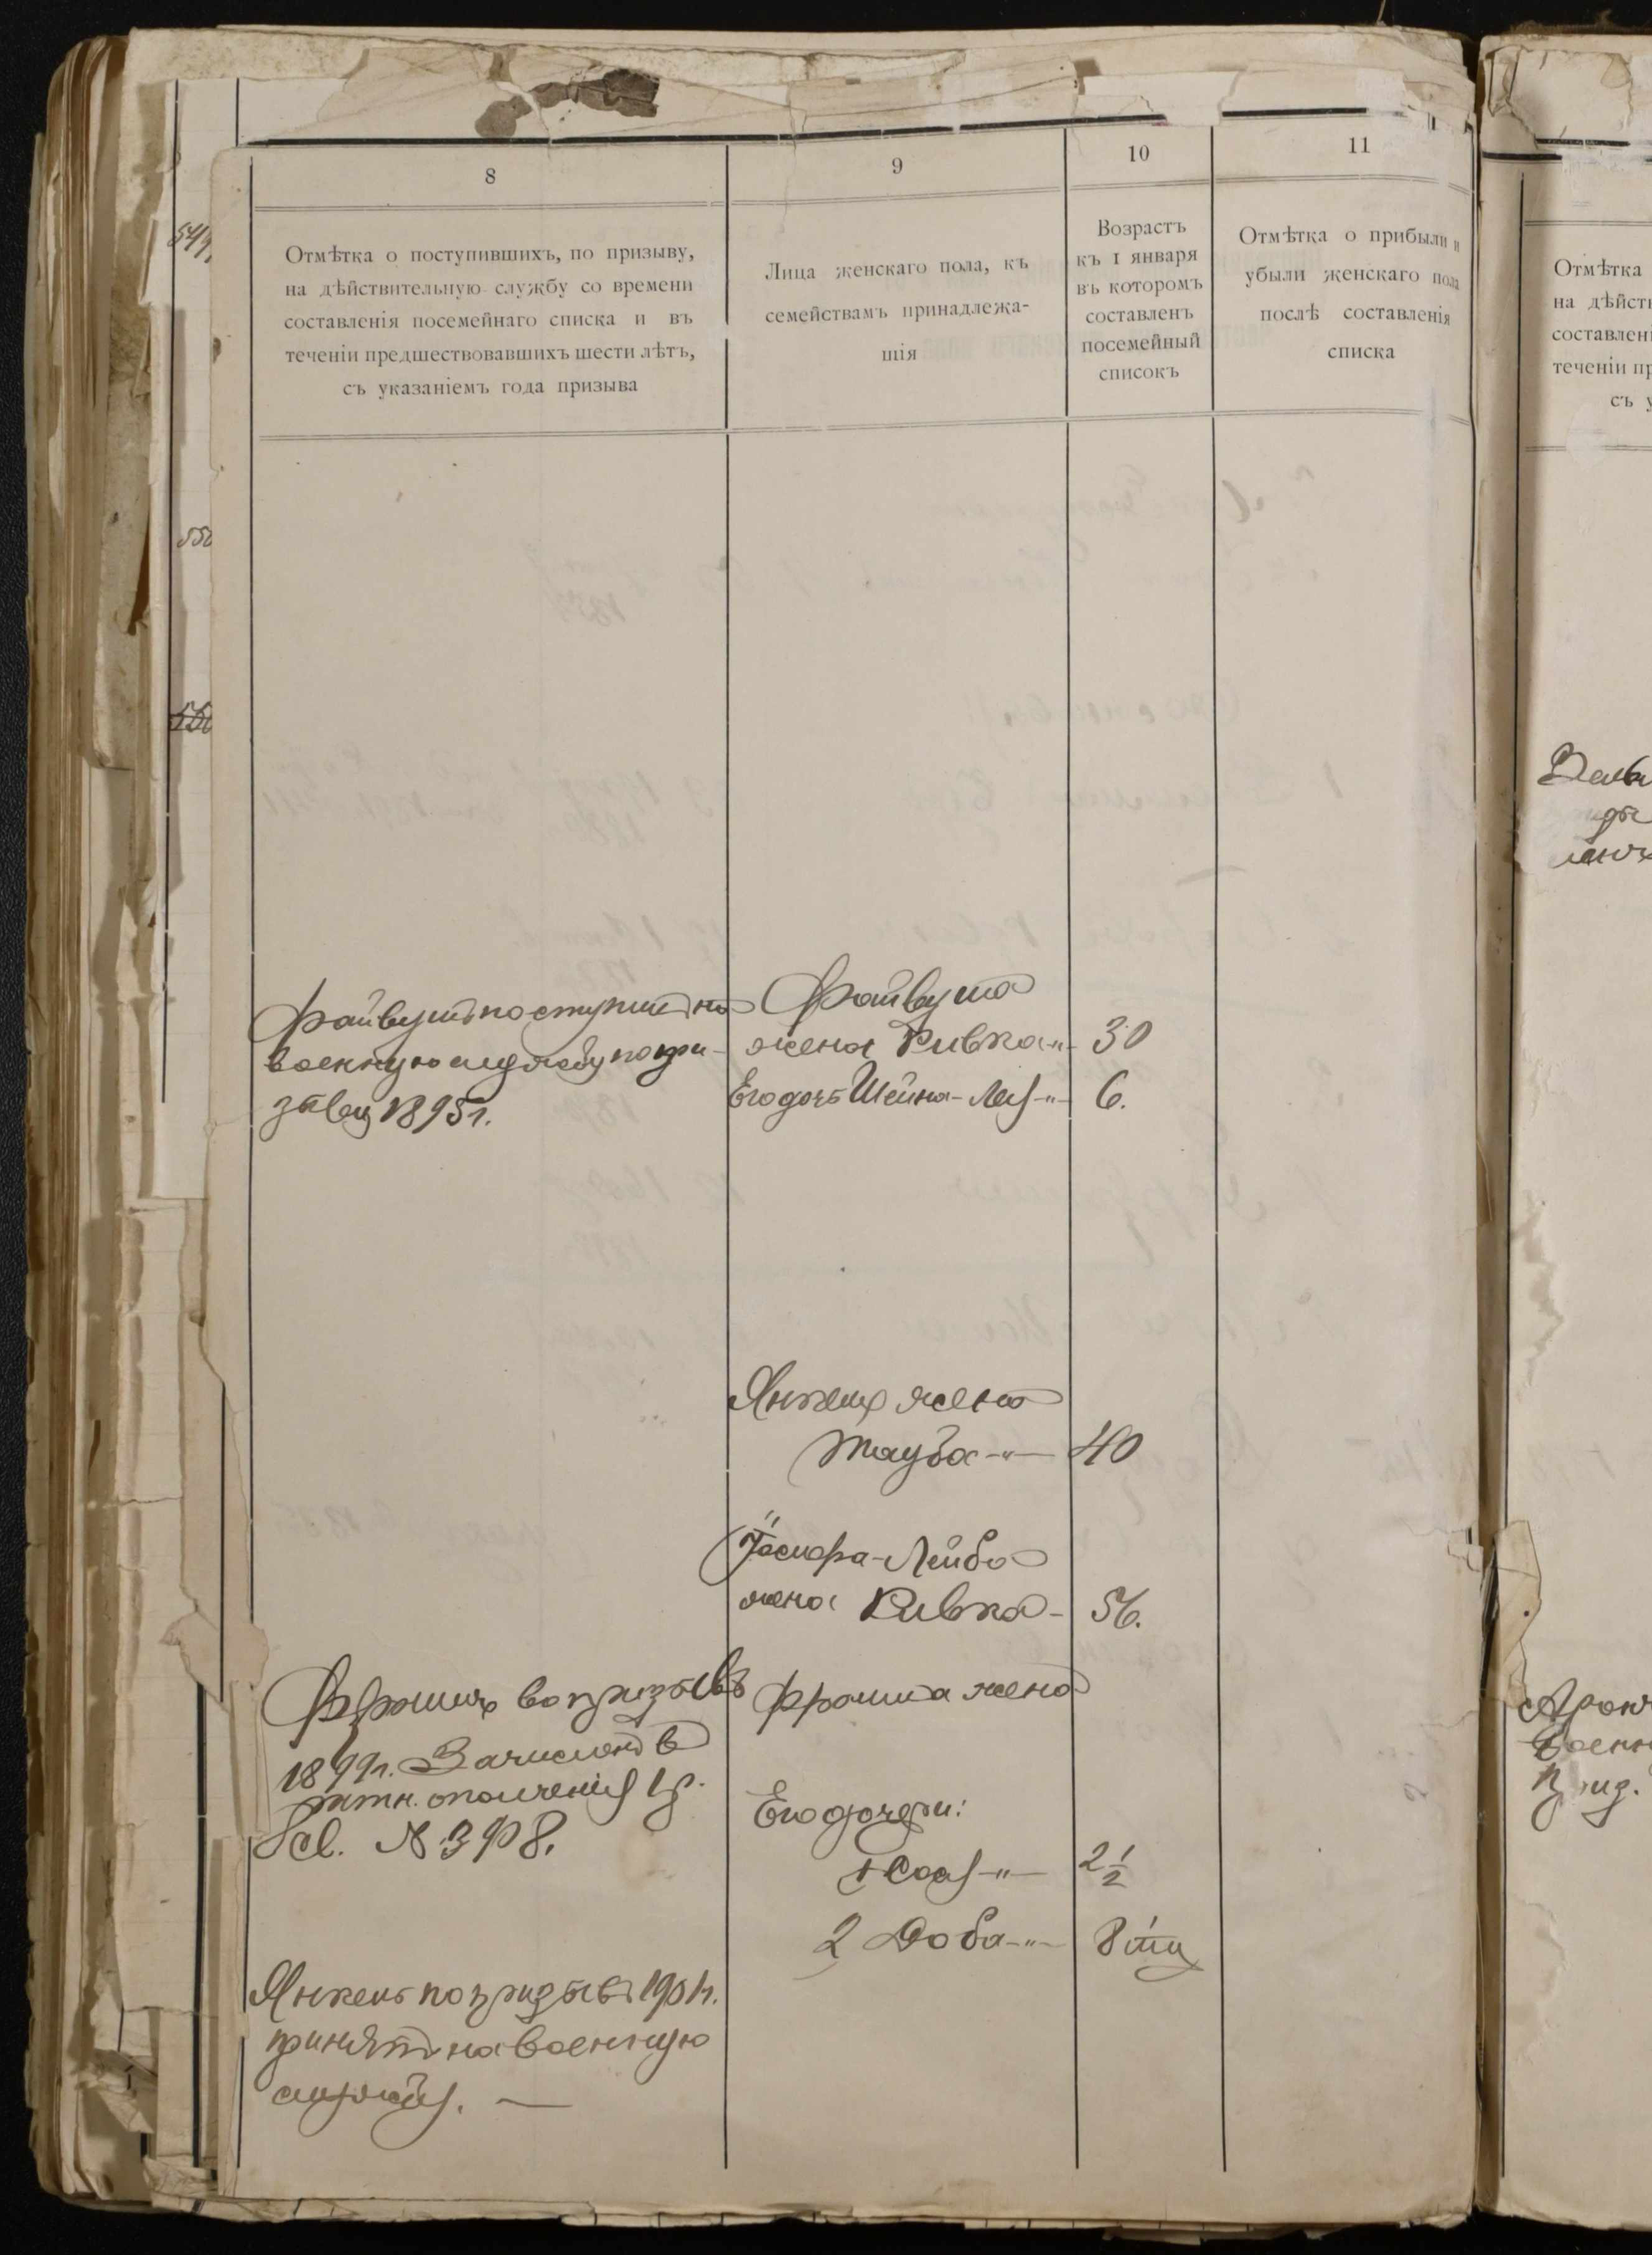 8
9
10
11
Отмѣтка о поступившихъ, по призыву,
на дѣйствительную службу со времени
составленія посемейнаго списка и въ
теченіи предшествовавшихъ шести лѣтъ,
съ указаніемъ года призыва
Лица женскаго пола, къ
семействамъ принадлежа-
щія
Возрастъ
къ 1 января
въ которомъ
составленъ
посемейный
списокъ
Отмѣтка о прибыли и
убыли женскаго пола
послѣ составленія
списка
Отмѣтка
на дѣйств
составлені
теченіи пр
съ у
549
550
Файвушъ поступилъ на
военную службу по при-
зыву 1895 г.
Файвуша
жена Ривка -"- 30
Его дочь Шейна-Лея -"- 6.
Янкеля жена
Тауба -"- 40
Іосифа-Лейба
жена Ривка - 56.
Фроимъ въ призывъ
1899 г. Зачисленъ в
ратн. ополченія 1 р.
Св. № 3908.
Фроима жена
Его дочери:
1 Соя -"- 2 1/2
2 Доба -"-
Янкель по призыву 1901 г.
принятъ на военную
службу. —